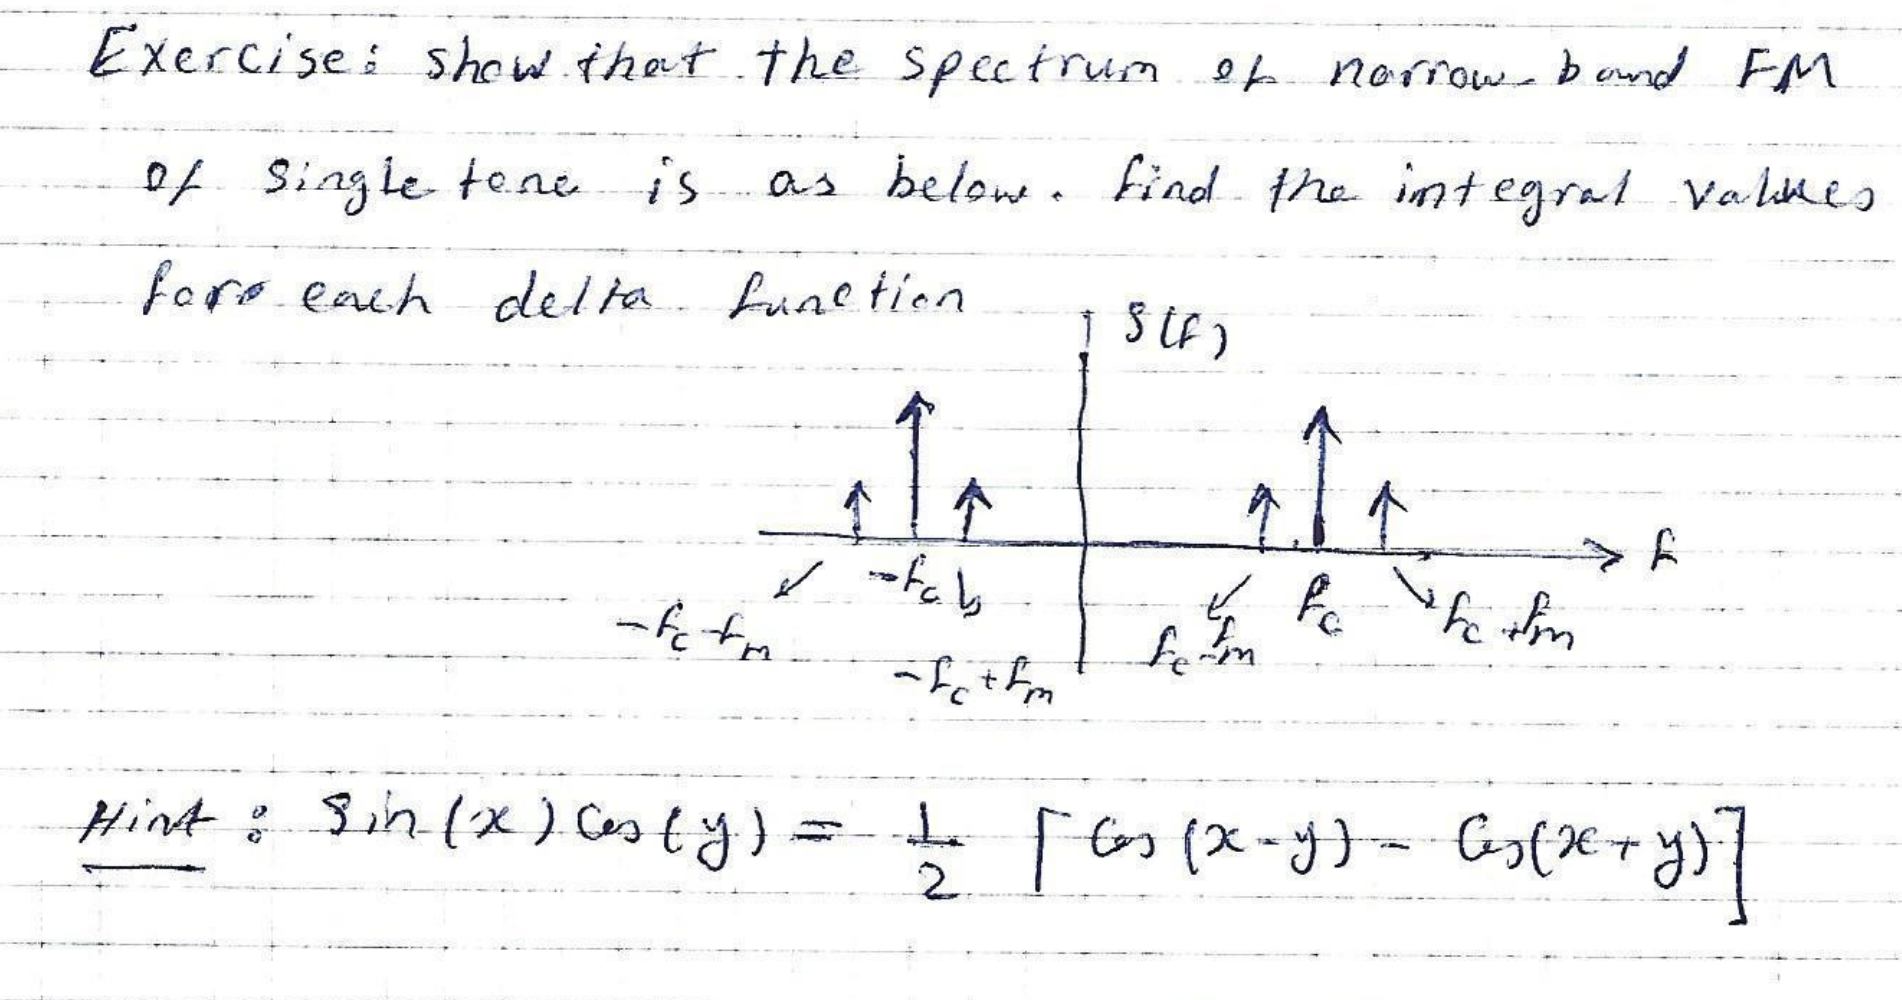 Exercise: show that the spectrum of narrow-band FM
of single tone is as below. find the integral values
for each delta function
S(f)
f
-fc
fc
-fc-fm
-fc+fm
fc-fm
fc+fm
Hint: Sin(x) Cos(y) = 1/2 [Cos(x-y) - Cos(x+y)]